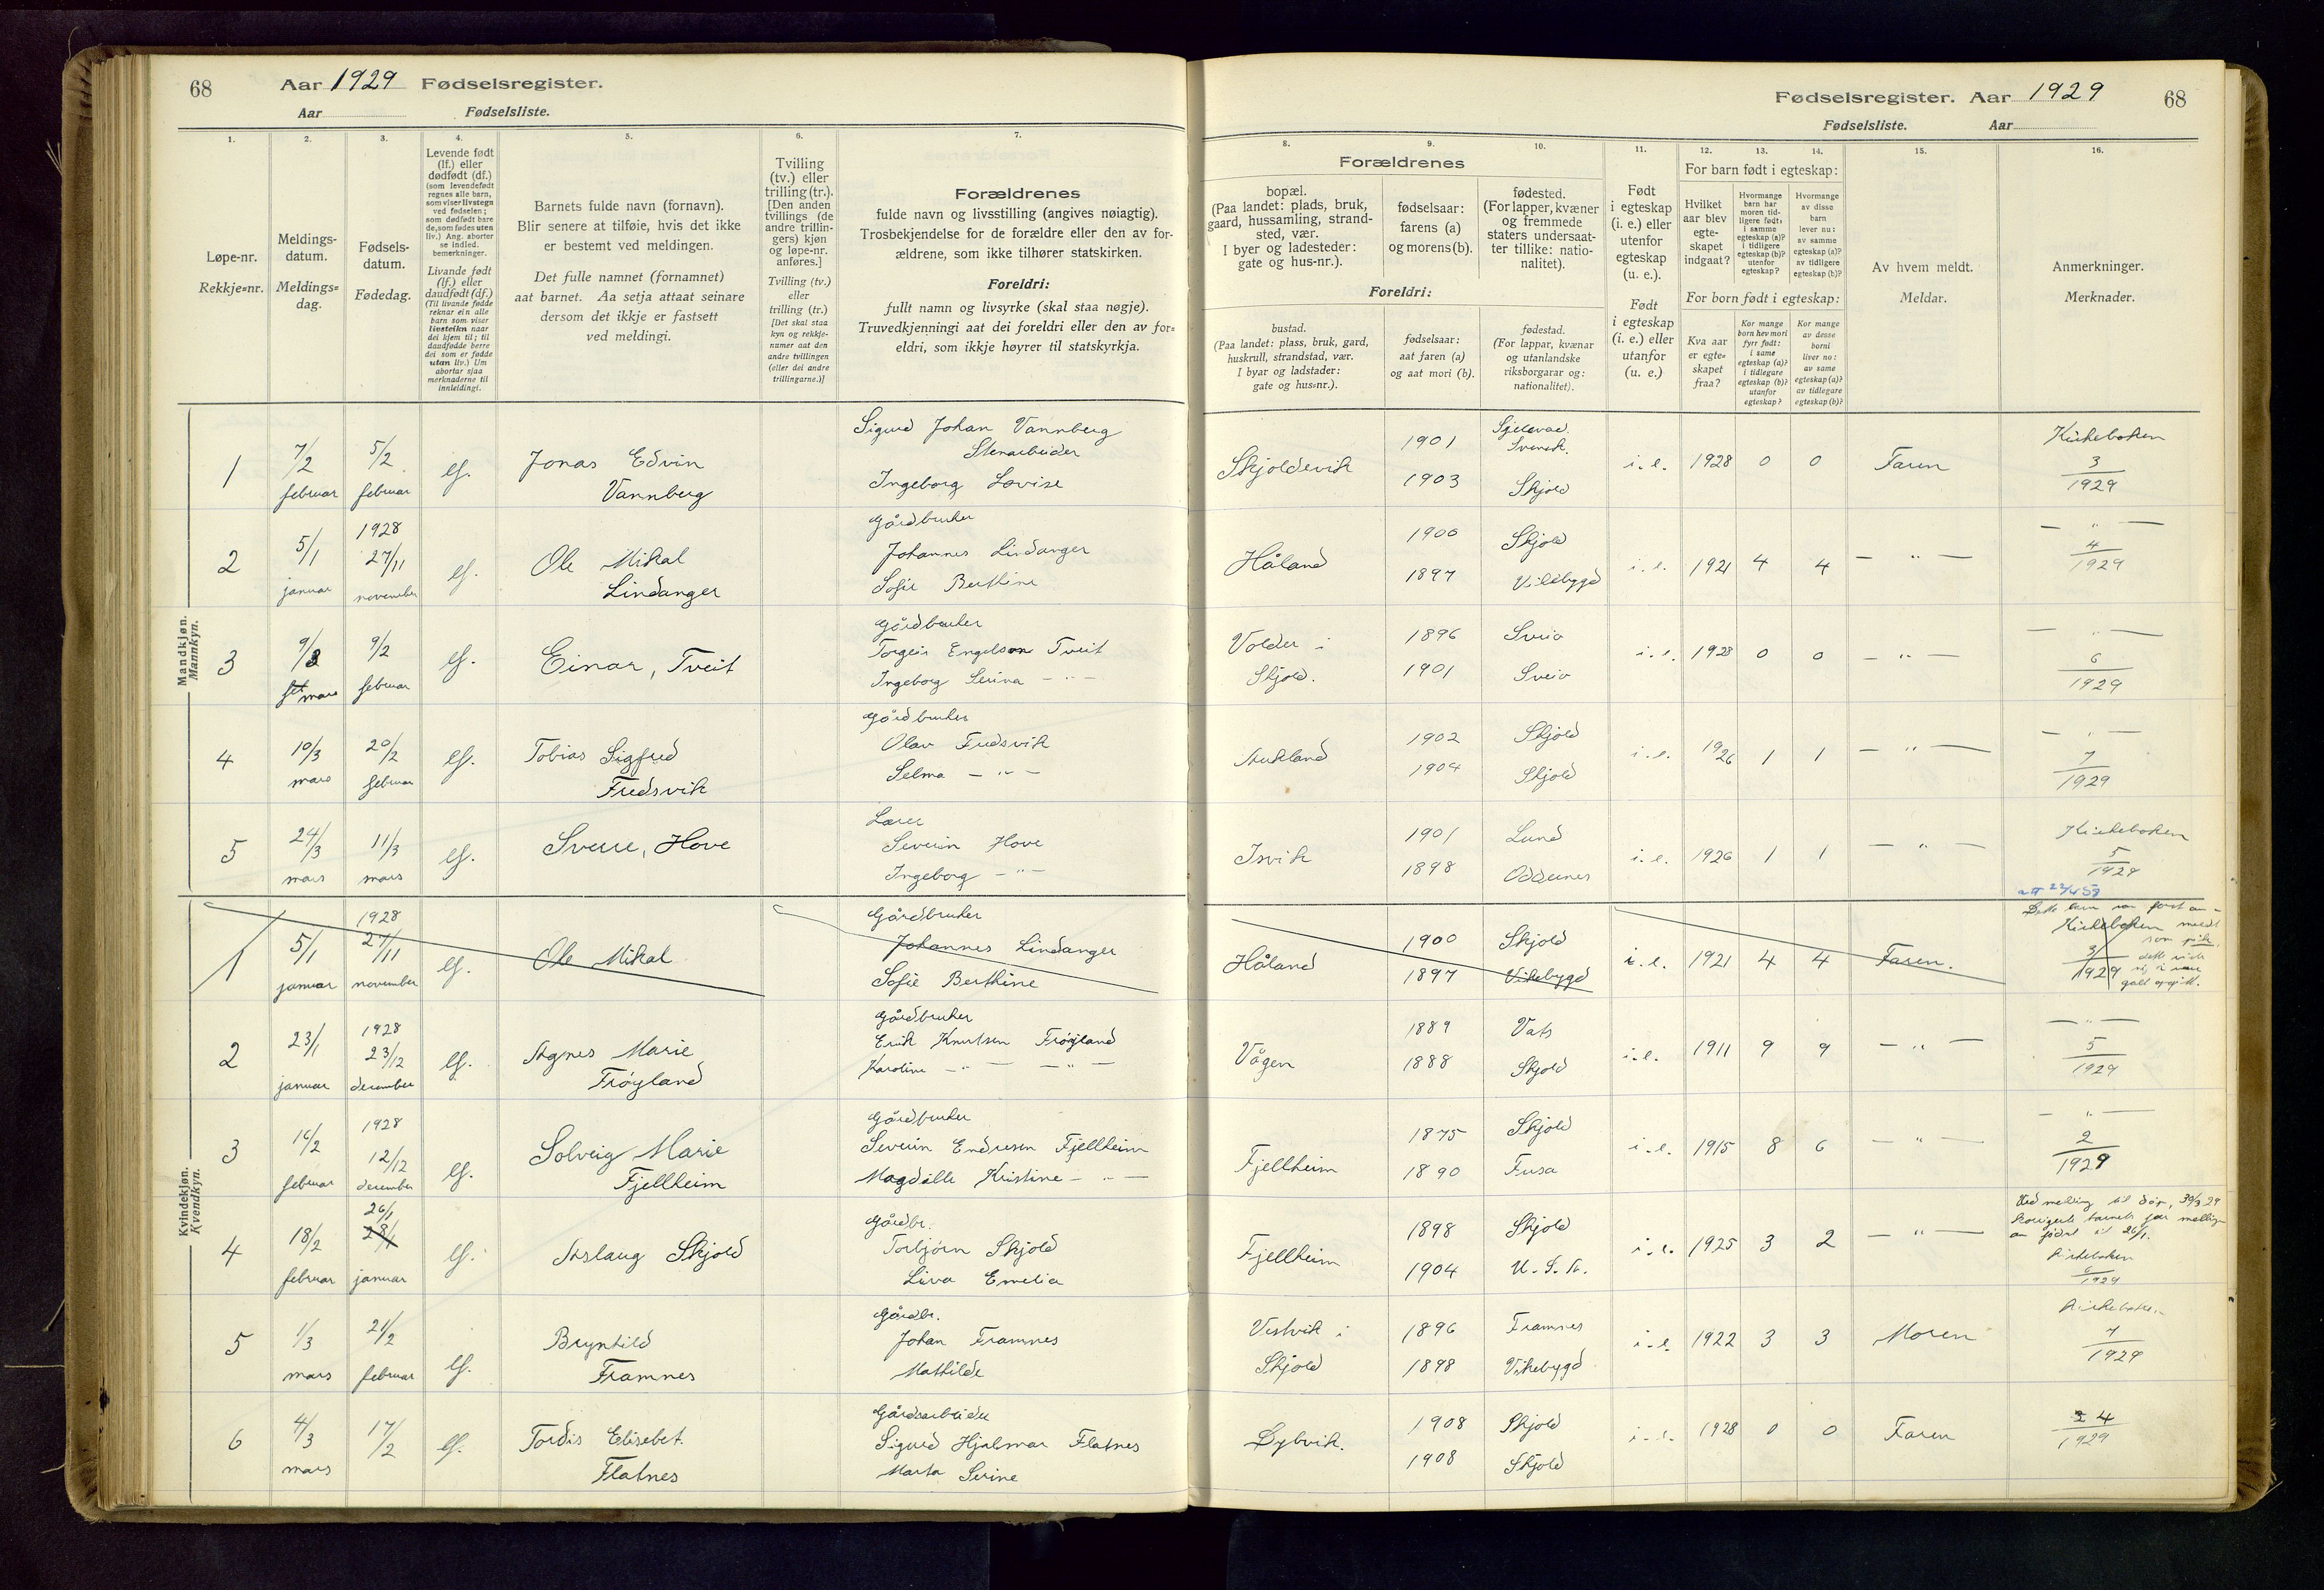 68
Aar 1929 Fødselsregister.
Aar Fødselsliste.
1. 2. 3. 4. 5. 6. 7.
Løpe-nr.
Rekkje=nr.
Meldings-
datum.
Meldings=
dag.
Fødsels-
datum.
Fødedag.
Levende født
(lf.) eller
dødfødt (df.)
(som levendefødt
regnes alle barn,
som viser livstegn
ved fødselen;
som dødfødt bare
de, som fødes uten
liv.) Ang. aborter
se indled.
bemerkninger.
Livande født
(lf.) eller
daudfødt (df.)
(Til livande fødde
reknar ein alle
barn som viser
livsteikn naar
dei kjem til; til
daudfødde berre
dei som er fødde
utan liv.) Um
abortar sjaa
merknaderne til
innleidingi.
Barnets fulde navn (fornavn).
Blir senere at tilføie, hvis det ikke
er bestemt ved meldingen.
Det fulle namnet (fornamnet)
aat barnet. Aa setja attaat seinare
dersom det ikkje er fastsett
ved meldingi.
Tvilling
(tv.) eller
trilling (tr.).
[Den anden
tvillings (de
andre trillin-
gers) kjøn
og løpe-nr.
anføres.]
Tvilling (tv.)
eller
trilling (tr.)
[Det skal staa
kyn og rekkje-
numer aat den
andre tvillingen
(eller dei andre
trillingarne.)]
Forældrenes
fulde navn og livsstilling (angives nøiagtig).
Trosbekjendelse for de forældre eller den av for-
ældrene, som ikke tilhører statskirken.
Foreldri:
fullt namn og livsyrke (skal staa nøgje).
Truvedkjenningi aat dei foreldri eller den av for=
eldri, som ikkje høyrer til statskyrkja.
Mandkjøn.
Mannkyn.
1 7/2 februar 5/2 februar lf. Jonas Edvin Vannberg
Sigurd Johan Vannberg
Stenarbeider
Ingeborg Lovise
2 5/1 januar 1928 27/11 november lf. Ole Mikal Lindanger
Gårdbruker
Johannes Lindanger
Sofie Berthine
3 9/3 mars 9/2 februar lf. Einar, Tveit
Gårdbruker
Torgeir Engelsen Tveit
Ingeborg Serina — " —
4 10/3 mars 20/2 februar lf. Tobias Sigfred Fredsvik
Gårdbruker
Olav Fredsvik
Selma — " —
5 24/3 mars 11/3 mars lf. Sverre, Hove
Lærer
Severin Hove
Ingeborg — " —
Kvindekjøn.
Kvendkyn.
1 5/1 januar 1928 27/11 november lf. Ole Mikal
Gårdbruker
Johannes Lindanger
Sofie Berthine
2 23/1 januar 1928 23/12 december lf. Agnes Marie Frøyland
Gårdbruker
Erik Knutsen Frøyland
Karoline — " — — " —
3 februar 1928 12/12 december lf. Solveig Marie Fjellheim
Gårdbruker
Severin Endresen Fjellheim
Magdalle Kristine — " —
4 18/2 februar 26/1 28/1 januar lf. Aslaug Skjold
Gårdbr.
Torbjørn Skjold
Liva Emelia
5 1/3 mars 21/2 februar lf. Brynhild Framnes
Gårdbr.
Johan Framnes
Mathilde
6 4/3 mars 17/2 lf. Tordis Elisebet. Flatnes
Gårdsarbeider
Sigurd Hjalmar Flatnes
Marta Serine
Fødselsregister. Aar 1929 68
Fødselsliste. Aar
8. 9. 10. 11. 12. 13. 14. 15. 16.
Forældrenes
bopæl.
(Paa landet: plads, bruk,
gaard, hussamling, strand-
sted, vær.
I byer og ladesteder:
gate og hus-nr.).
fødselsaar:
farens (a)
og morens (b).
fødested.
(For lapper, kvæner
og fremmede
staters undersaat-
ter tillike: natio-
nalitet).
Foreldri:
bustad.
(Paa landet: plass, bruk, gard,
huskrull, strandstad, vær.
I byar og ladstader:
gate og hus=nr.).
fødselsaar:
aat faren (a)
og aat mori (b).
fødestad.
(For lappar, kvænar
og utanlandske
riksborgarar og:
nationalitet).
Født
i egteskap
(i. e.) eller
utenfor
egteskap
(u. e.).
Født
i egteskap
(i. e.) eller
utanfor
egteskap
(u. e.)
For barn født i egteskap:
Hvilket
aar blev
egte-
skapet
indgaat?
Hvormange
barn har
moren tid-
ligere født:
i samme
egteskap (a)?
i tidligere
egteskap (b)?
utenfor
egteskap?
Hvormange
av disse
barn
lever nu:
av samme
egteskap (a)?
av tidligere
egteskap (b)?
For born født i egteskap:
Kva aar
er egte=
skapet
fraa?
Kor mange
born hev mori
fyrr født:
i same
egteskap (a)?
i tidlegare
egteskap (b)?
utanfor
egteskap?
Kor mange
av desse
borni
liver no:
av same
egteskap (a)?
av tidlegare
egteskap (b)?
Av hvem meldt.
Meldar.
Anmerkninger.
Merknader.
Skjoldevik 1901 1903 Svensk. Skjold i. e. 1928 0 0 Faren Kirkeboken 3/1929
Håland 1900 1897 Skjold Vikebygd i. e. 1921 4 4 — " — — " — 4/1929
Volder i Skjold. 1896 1901 Sveio Sveio i. e. 1928 0 0 — " — — " — 6/1929
Aukland 1902 1904 Skjold Skjold i. e. 1926 1 1 — " — — " — 7/1929
Isvik 1901 1898 Lund Oddernes i. e. 1926 1 1 — " — Kirkeboken 5/1929
Håland 1900 1897 Skjold Vikebygd i. e. 1921 4 4 Faren. Kirkeboken 3/1929
Vågen 1889 1888 Vats Skjold i. e. 1911 9 9 — " — — " — 5/1929
Fjellheim 1875 1890 Skjold Fusa i. e. 1915 8 6 — " — — " — 2/1929
Fjellheim 1898 1904 Skjold U. S. A. i. e. 1925 3 2 — " — Kirkeboken 6/1929
Vestvik i Skjold 1896 1898 Framnes Vikebygd i. e. 1922 3 3 Moren Kirkeboken 7/1929
Dybvik. 1908 1908 Skjold Skjold i. e. 1928 0 0 Faren 4/1929